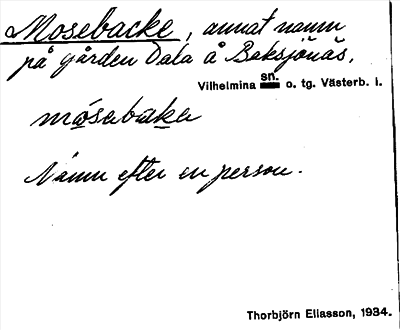 Mosebacke, annat namn
på gården Dala å Boksjönäs.
Vilhelmina sn. o. tg. Västerb. l.
mósebake
Namn efter en person.
Thorbjörn Eliasson, 1934.